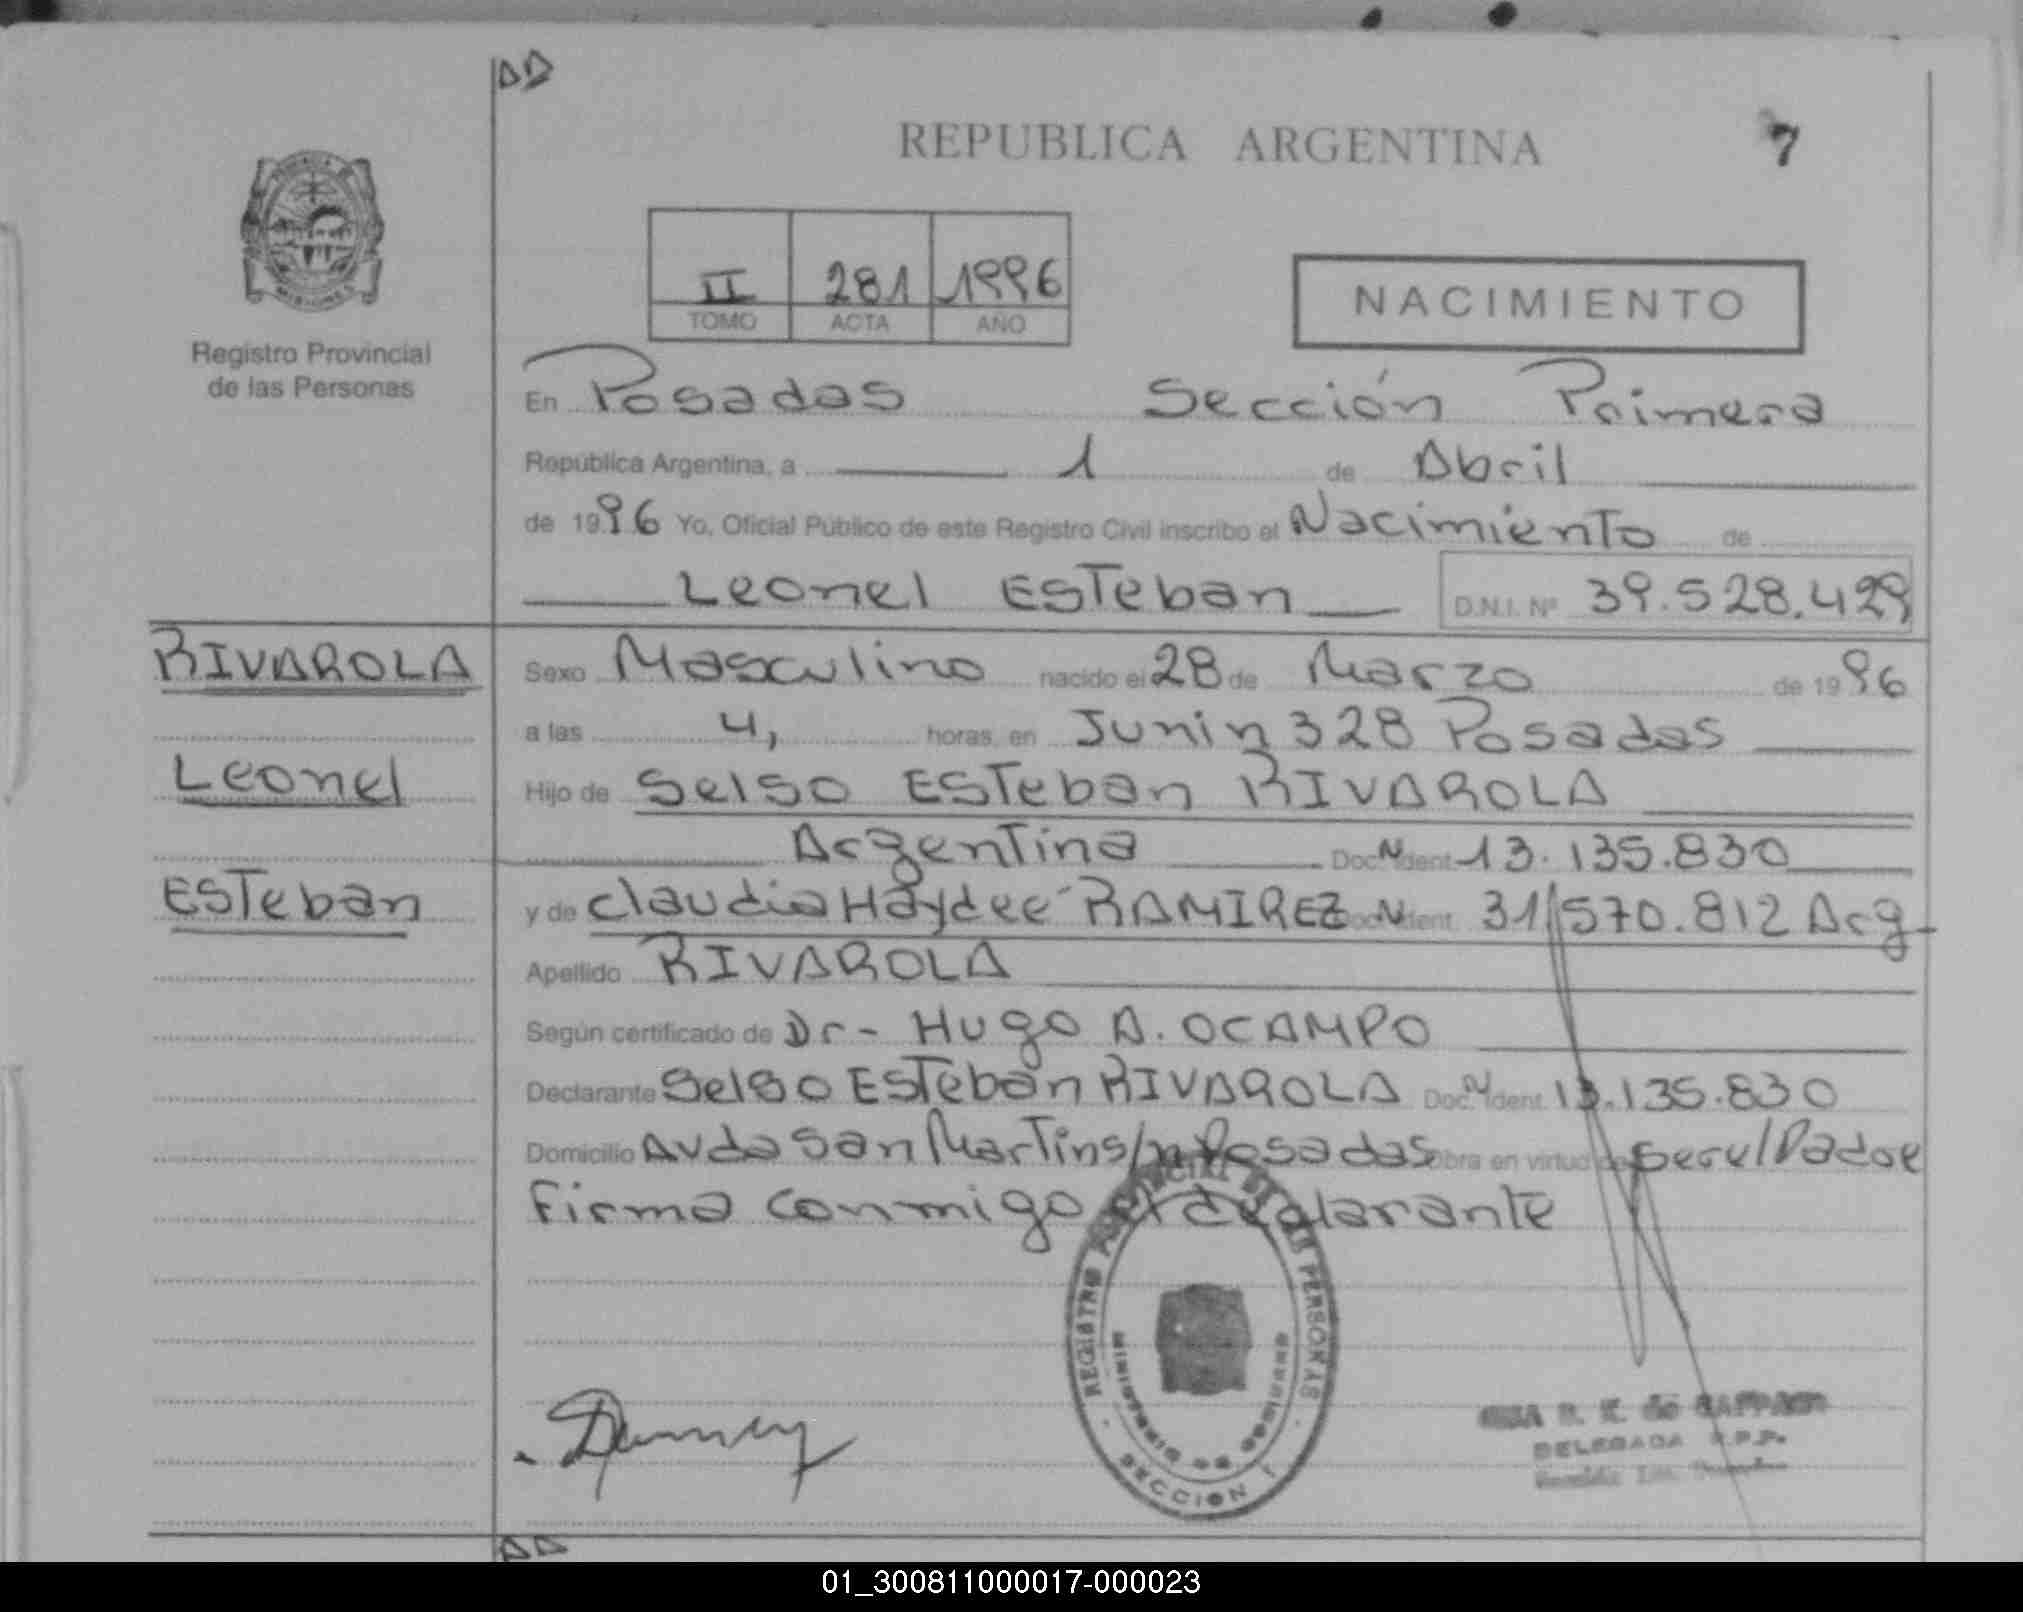 REPUBLICA ARGENTINA
7
II 281 1996
TOMO ACTA AÑO
NACIMIENTO
Registro Provincial
de las Personas
En Posadas Sección Primera
República Argentina, a 1 de Abril
de 1996 Yo, Oficial Público de este Registro Civil inscribo el Nacimiento de
Leonel Esteban D.N.I. Nº 39.528.429
RIVAROLA
Leonel
Esteban
Sexo Masculino nacido el 28 de Marzo de 1996
a las 4, horas, en Junin 328 Posadas
Hijo de Selso Esteban RIVAROLA
Argentina Doc. N Ident. 13.135.830
y de Claudia Haydee RAMIREZ Doc. N Ident. 31.570.812 Arg
Apellido RIVAROLA
Según certificado de Dr- Hugo A. OCAMPO
Declarante Selso Esteban RIVAROLA Doc. N Ident. 13.135.830
Domicilio Avda San Martin s/n Posadas Obra en virtud de ser el Padre
Firma conmigo el declarante
REGISTRO PROVINCIAL DE LAS PERSONAS
MINISTERIO DE GOBIERNO
SECCION 1
DELEGADA R.P.P.
01_300811000017-000023